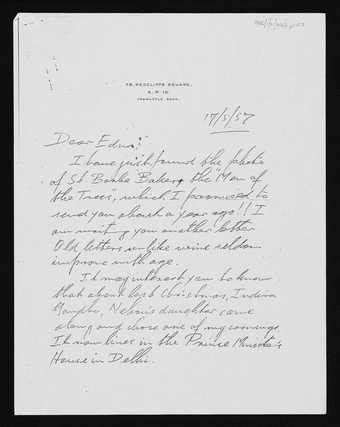 72, REDCLIFFE SQUARE,
S. W. 10.
17/5/57
Dear Edna:
I have just found the photo
of St Barbe Baker, the "Men of
the Trees", which I promised to
send you about a year ago!! I
am writing you another letter
Old letters unlike wine seldom
improve with age.
It may interest you to know
that about last Christmas, Indira
Nehru's daughter came
along and chose one of my carvings.
It now lives in the Prime Minister's
House in Delhi.